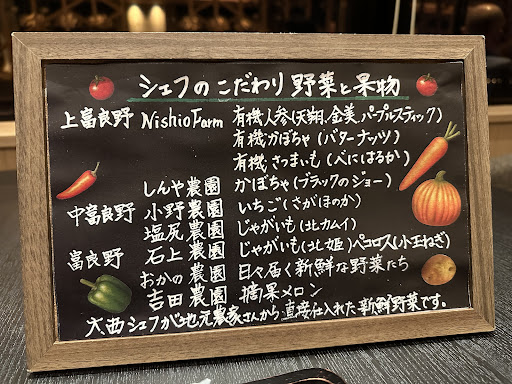 シェフのこだわり野菜と果物
上富良野 Nishio Farm 有機人参(天翔、金美、パープルスティック)
有機かぼちゃ(バターナッツ)
有機さつまいも(べにはるか)
しんや農園 かぼちゃ(ブラックのジョー)
中富良野 小野農園 いちご(さがほのか)
塩尻農園 じゃがいも(北カムイ)
富良野 石上農園 じゃがいも(北姫)ペコロス(小玉ねぎ)
おかの農園 日々届く新鮮な野菜たち
吉田農園 摘果メロン
大西シェフが地元農家さんから直接仕入れた新鮮野菜です。